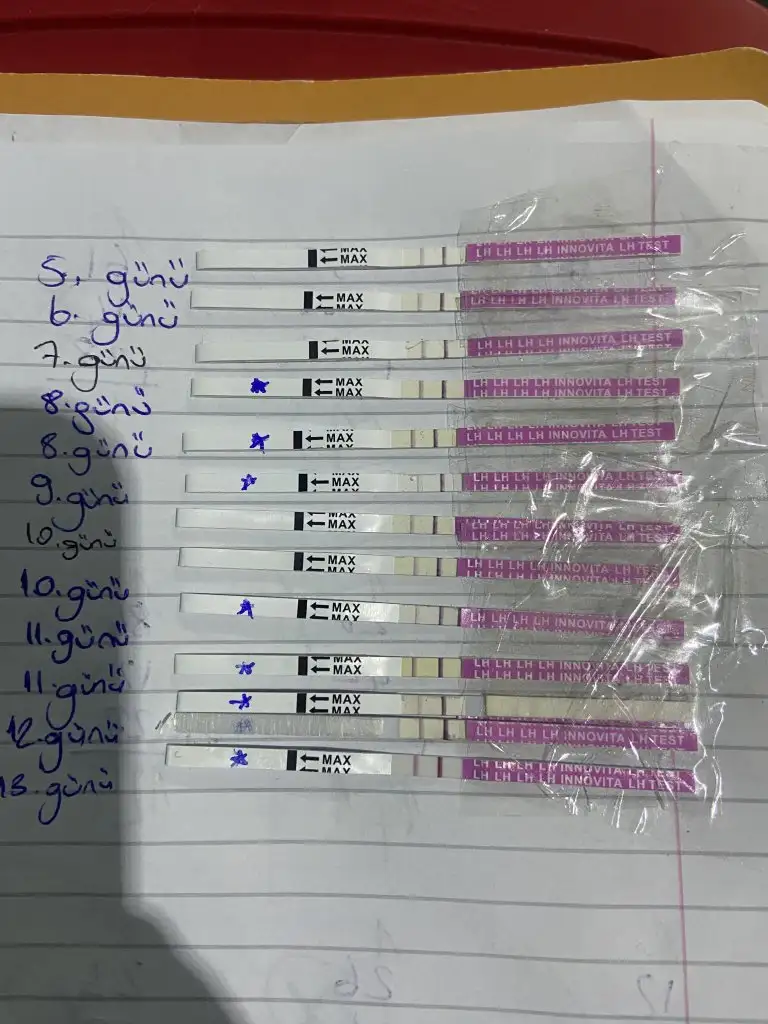 5. günü
MAX
← MAX
LH LH LH LH INNOVITA LH TEST
6. günü
← MAX
LH LH LH LH INNOVITA LH TEST
7. günü
← MAX
LH LH LH LH INNOVITA LH TEST
8. günü
← MAX
← MAX
LH LH LH LH INNOVITA LH TEST
8. günü
← MAX
LH LH LH LH INNOVITA LH TEST
9. günü
← MAX
LH LH LH LH INNOVITA LH TEST
10. günü
← MAX
← MAX
LH LH LH LH INNOVITA LH TEST
10. günü
← MAX
← MAX
LH LH LH LH INNOVITA LH TEST
11. günü
← MAX
LH LH LH LH INNOVITA LH TEST
11. günü
← MAX
← MAX
LH LH LH LH INNOVITA LH TEST
12. günü
← MAX
LH LH LH LH INNOVITA LH TEST
13. günü
← MAX
← MAX
LH LH LH LH INNOVITA LH TEST